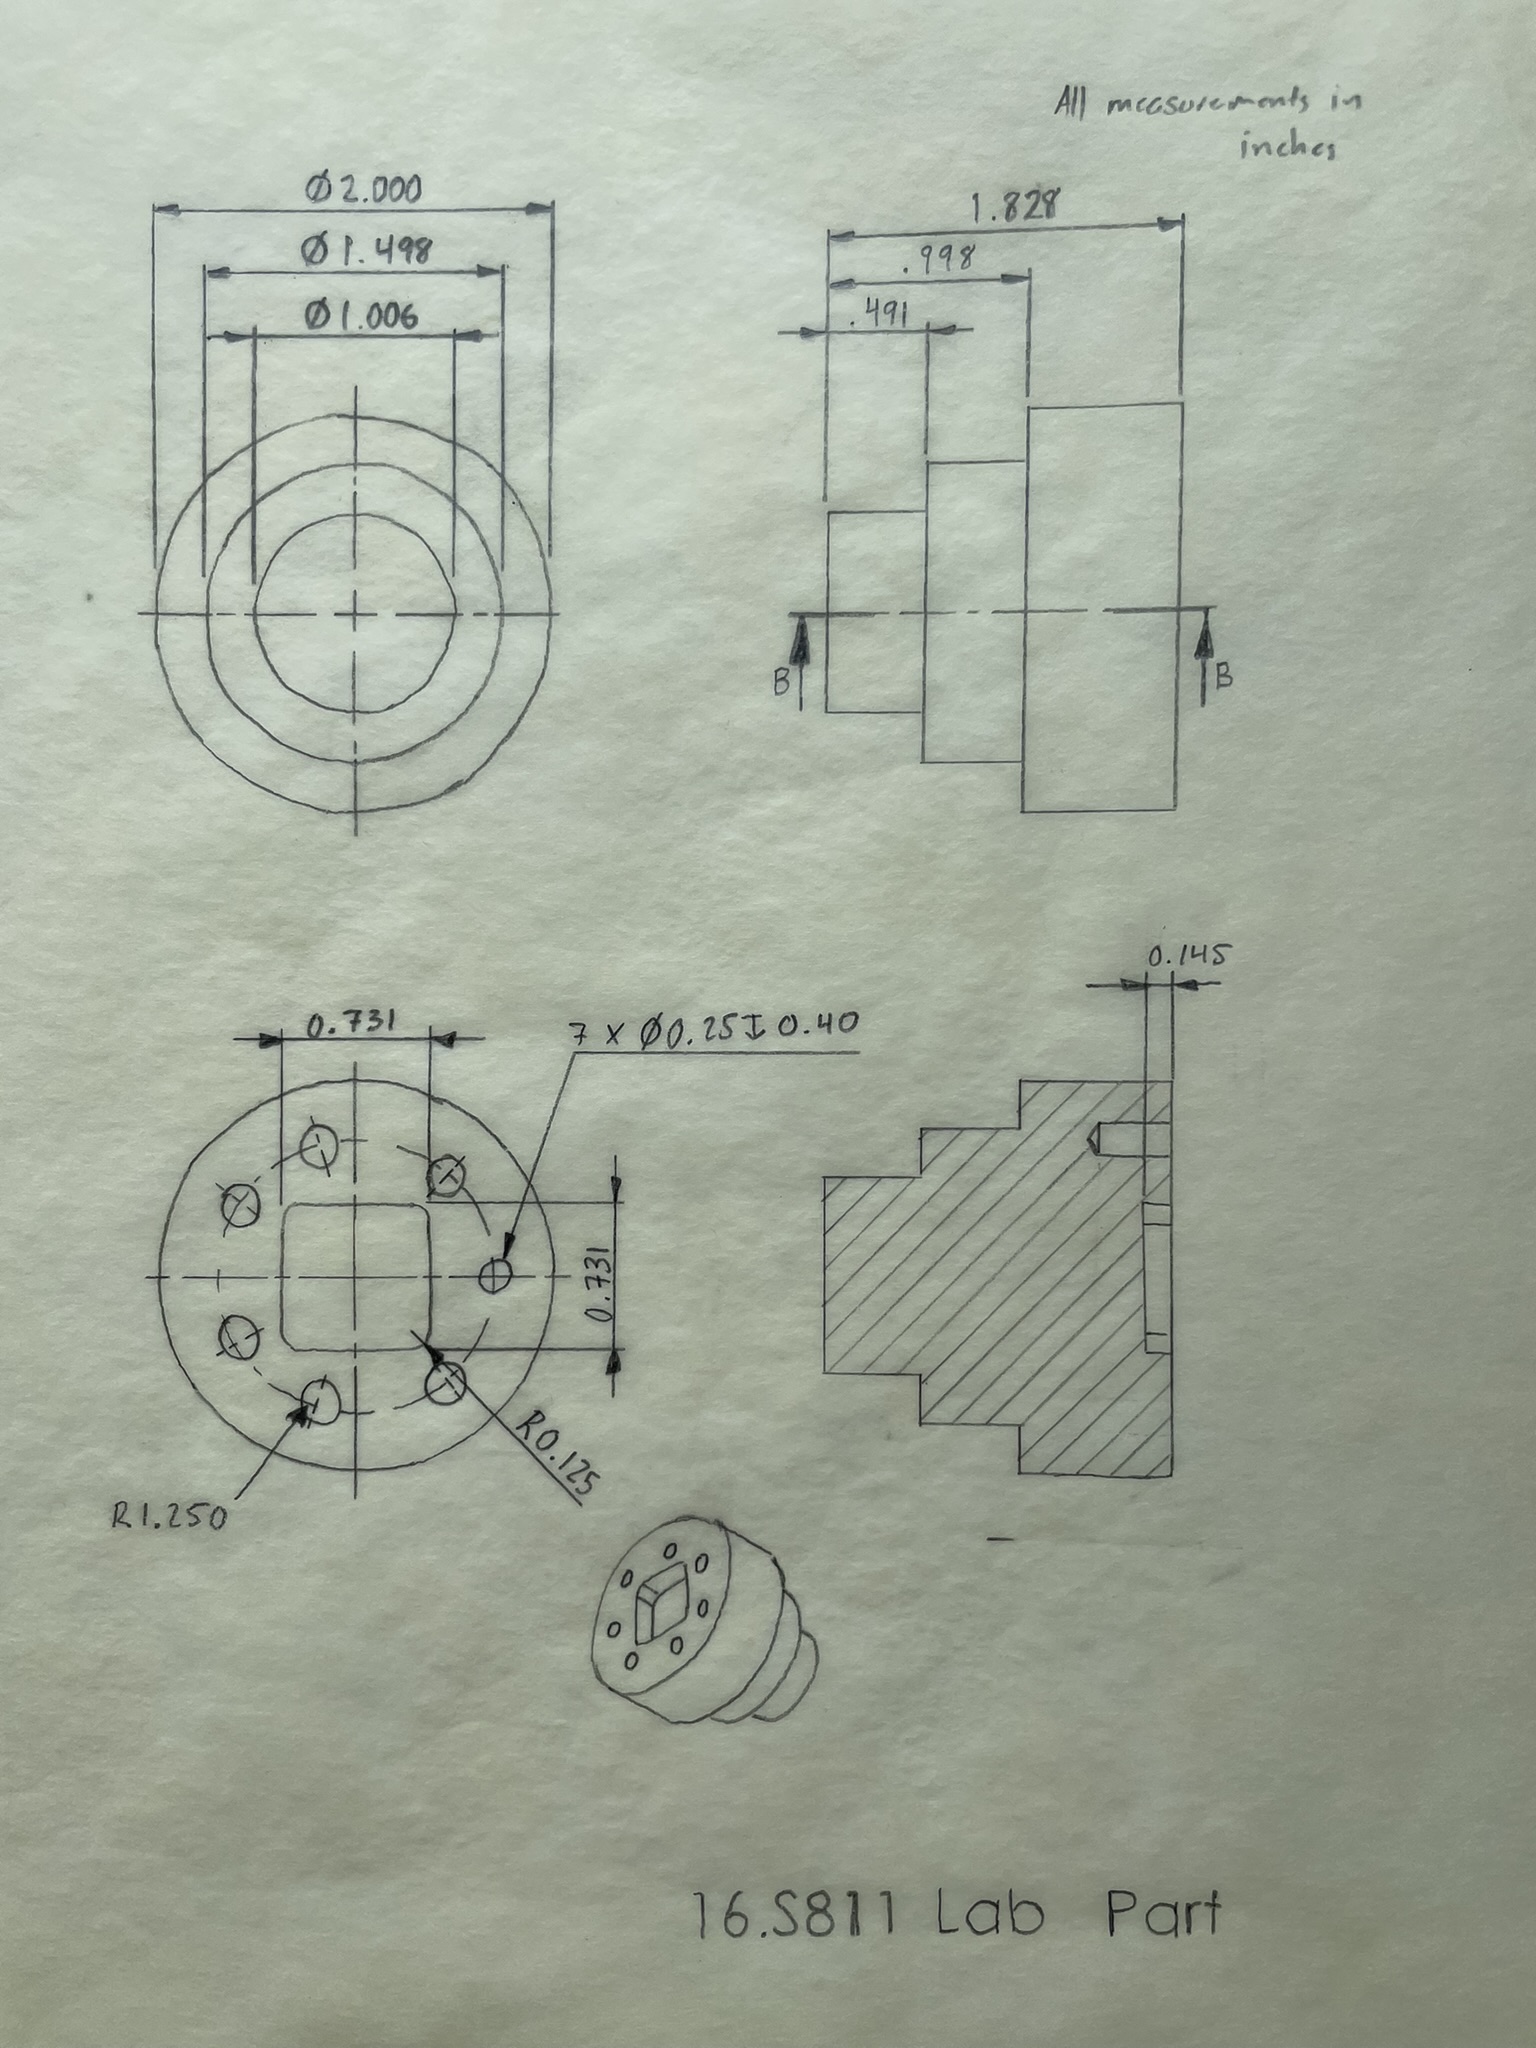 All measurements in
inches
Ø2.000
Ø1.498
Ø1.006
1.828
.998
.491
B
B
0.145
0.731
7 x Ø0.25↧0.40
0.731
R0.125
R1.250
16.S811 Lab Part